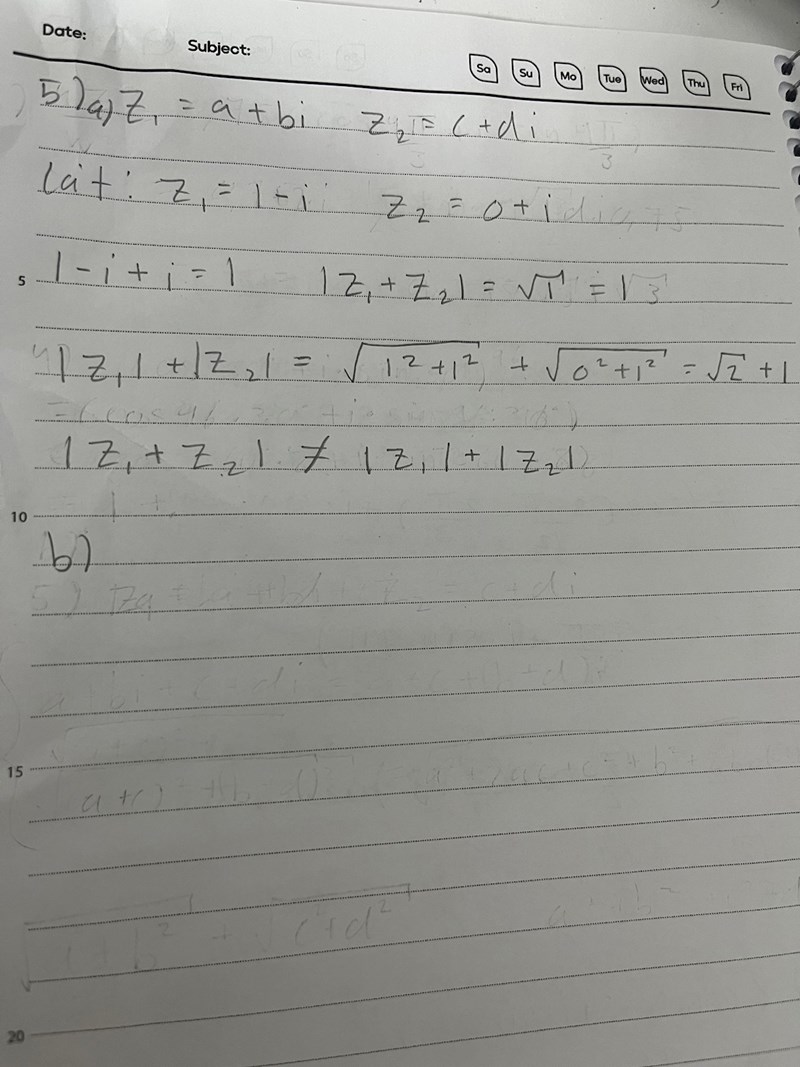 Date:
Subject:
Sa Su Mo Tue Wed Thu Fri
5) a) Z₁ = a + bi Z₂ = c + di
Lat: Z₁ = 1 - i Z₂ = 0 + i
5
1 - i + i = 1 |Z₁ + Z₂| = √1 = 1
|Z₁| + |Z₂| = √(1² + 1²) + √(0² + 1²) = √2 + 1
|Z₁ + Z₂| ≠ |Z₁| + |Z₂|
10
b)
15
20